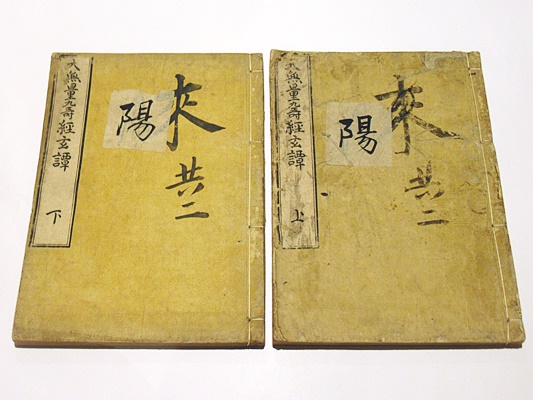 大無量壽經玄譚
上
陽
來
共二
大無量壽經玄譚
下
陽
來
共二